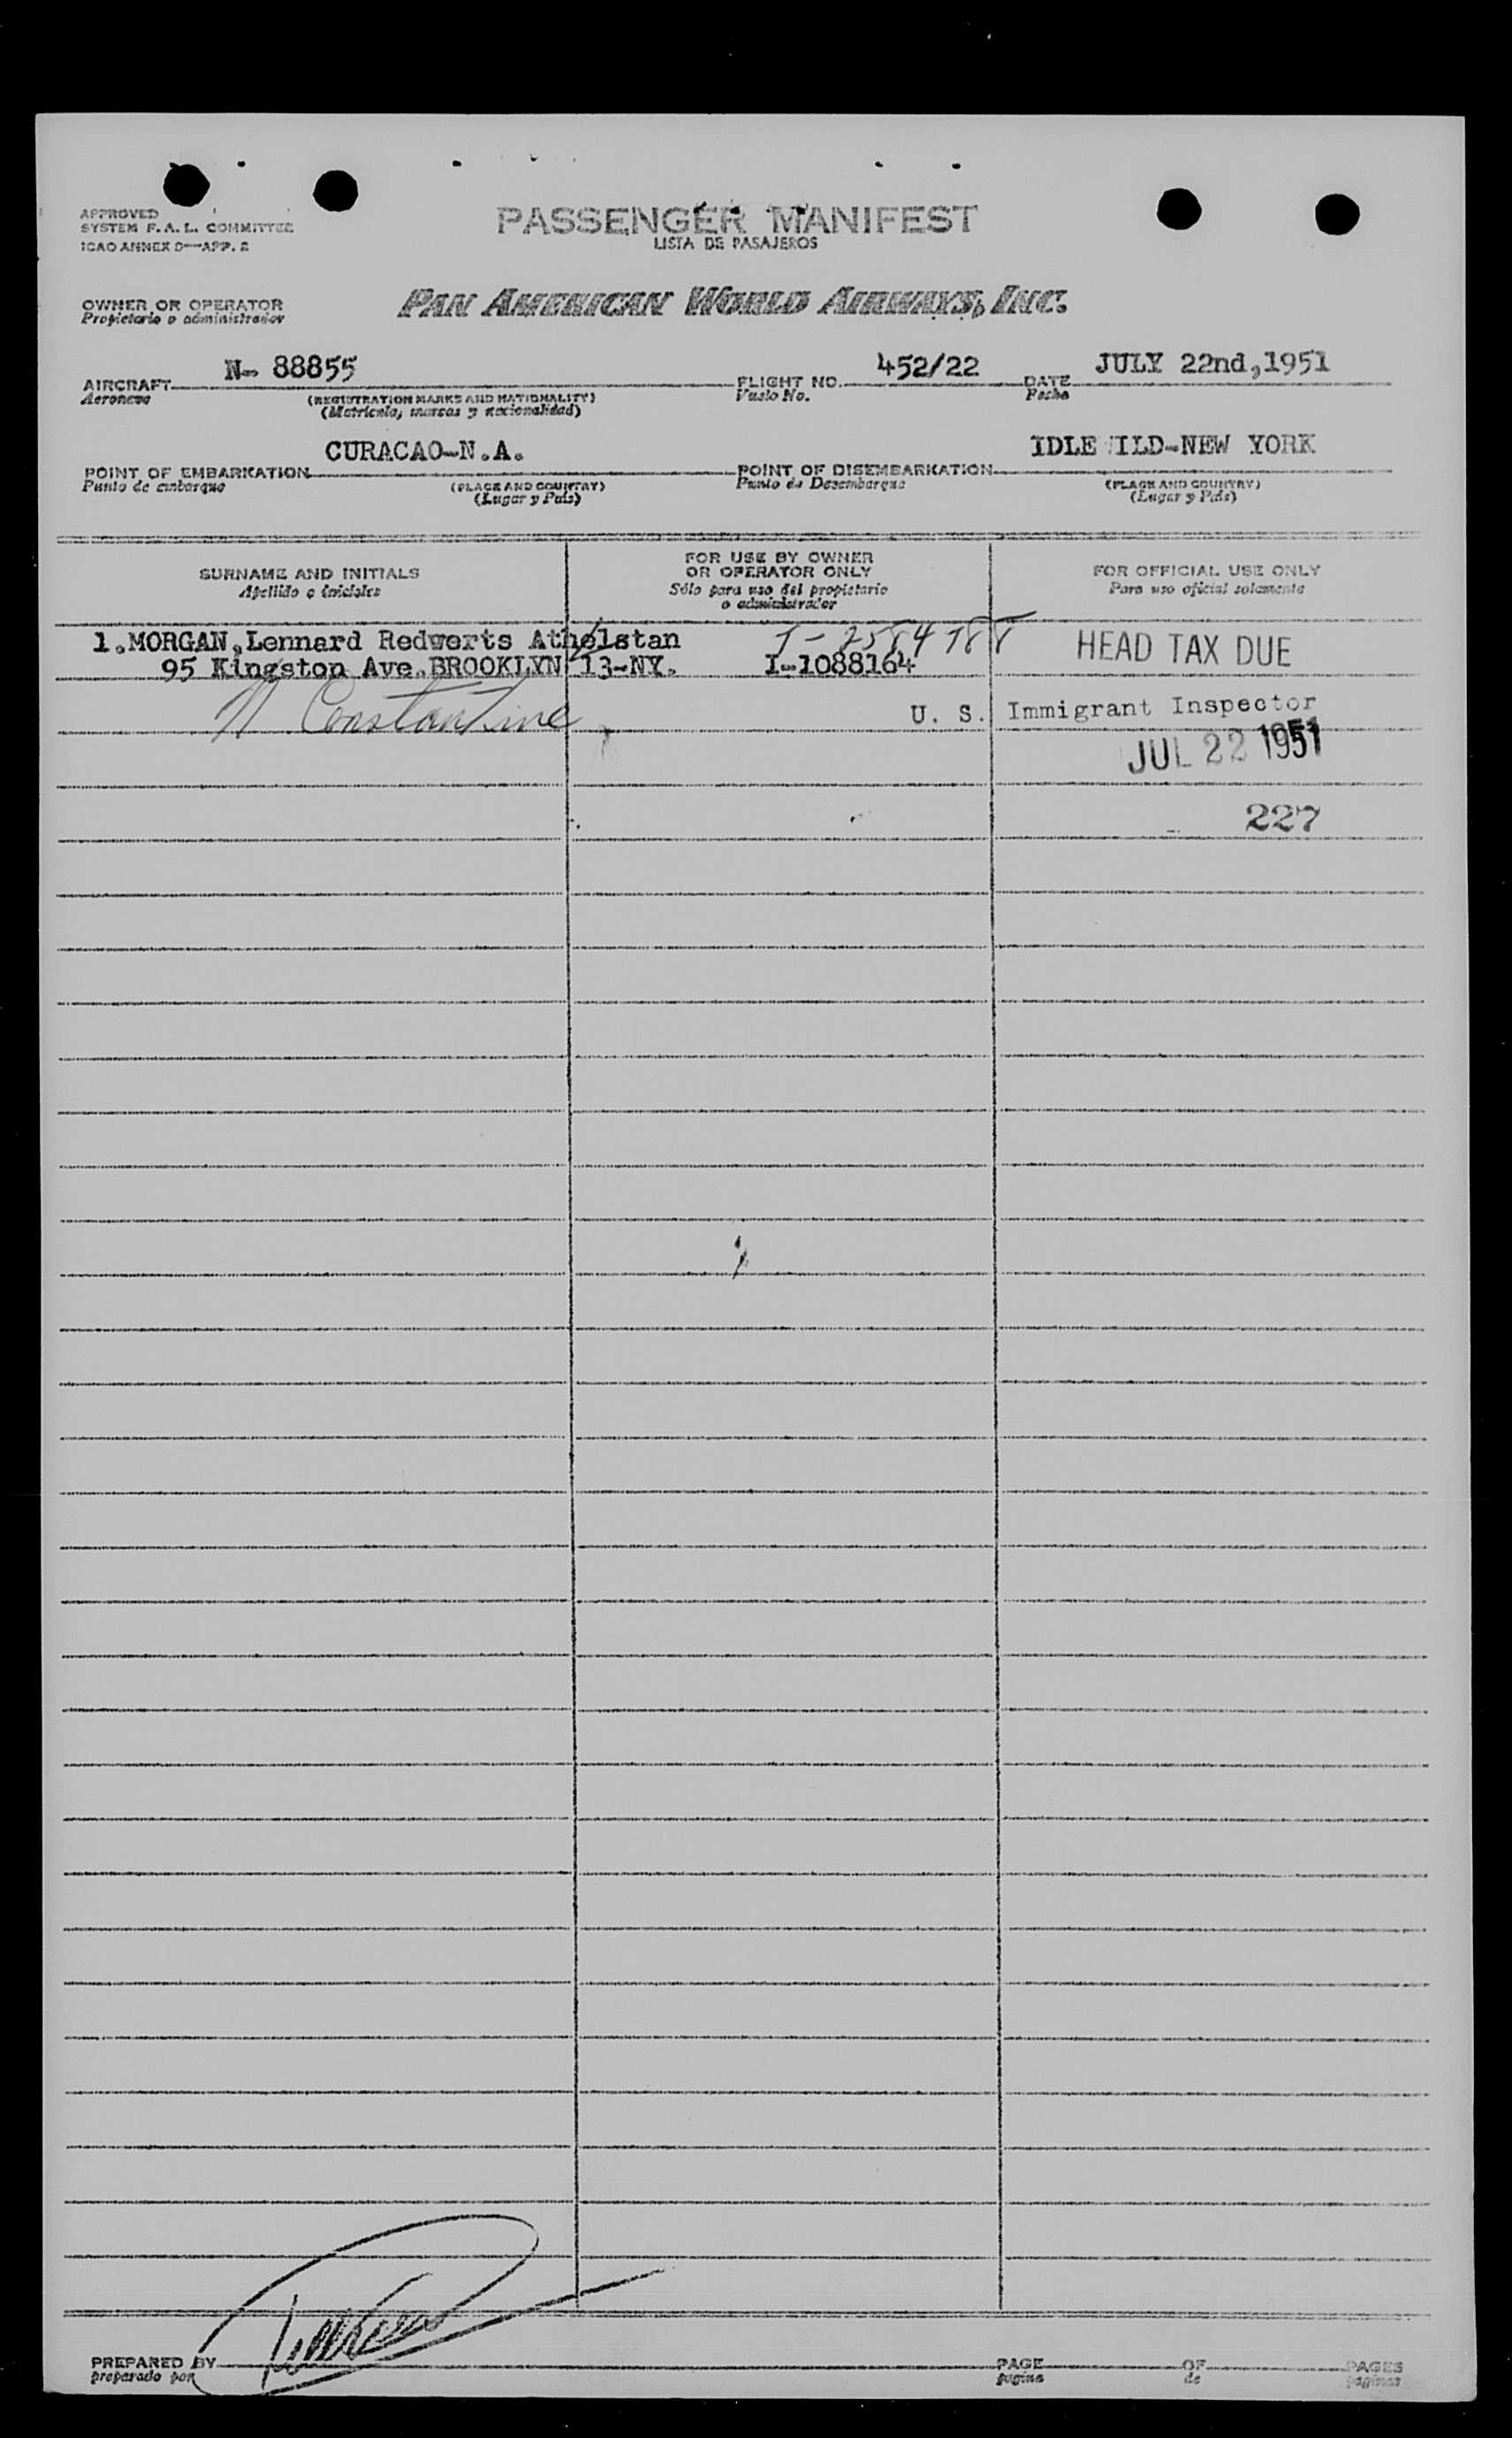 APPROVED
SYSTEM F.A.L. COMMITTEE
ICAO ANNEX 9—APP. 2
PASSENGER MANIFEST
LISTA DE PASAJEROS
OWNER OR OPERATOR
Propietario o administrador
PAN AMERICAN WORLD AIRWAYS, INC.
AIRCRAFT N- 88855 FLIGHT NO. 452/22 DATE JULY 22nd,1951
Aeronave (REGISTRATION MARKS AND NATIONALITY) Vuelo No. Fecha
(Matrícula, marcas y nacionalidad)
POINT OF EMBARKATION CURACAO-N.A. POINT OF DISEMBARKATION IDLE ILD-NEW YORK
Punto de embarque (PLACE AND COUNTRY) Punto de Desembarque (PLACE AND COUNTRY)
(Lugar y País) (Lugar y País)
SURNAME AND INITIALS FOR USE BY OWNER OR OPERATOR ONLY FOR OFFICIAL USE ONLY
Apellido e iniciales Sólo para uso del propietario o administrador Para uso oficial solamente
1.MORGAN,Lennard Redwerts Athelstan HEAD TAX DUE
95 Kingston Ave.BROOKLYN 13-NY. I-1088164
N Constantine U. S. Immigrant Inspector
JUL 22 1951
227
PREPARED BY PAGE OF PAGES
preparado por página de páginas